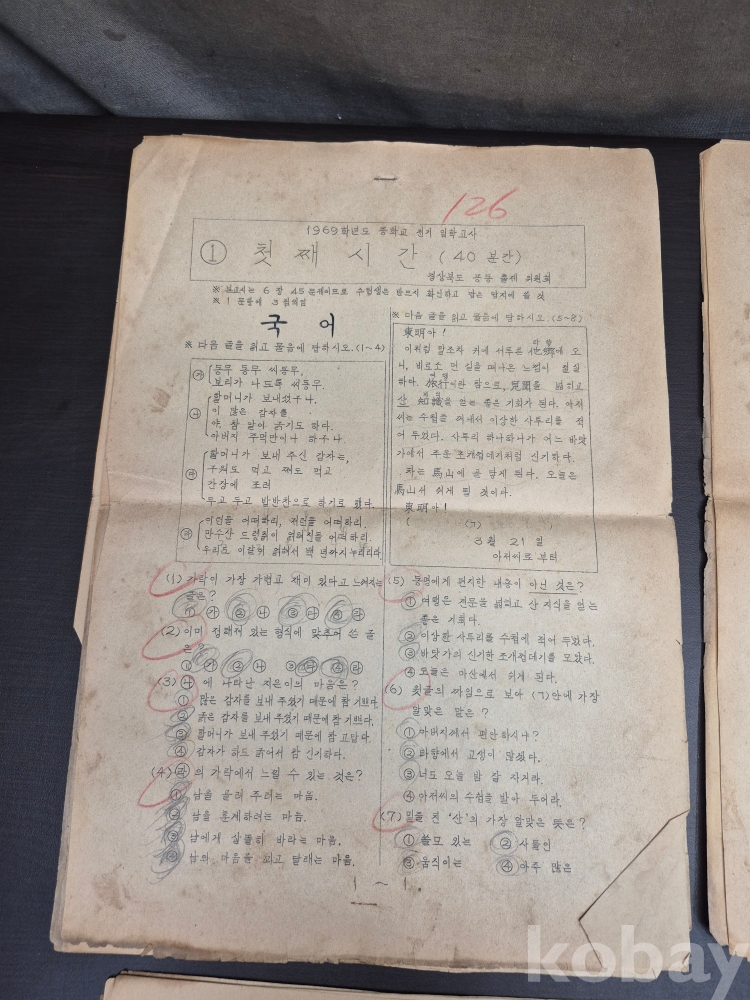 126
1969학년도 중학교 전기 입학고사
① 첫 째 시 간 (40 분간)
경상북도 공동 출제 위원회
※ 본고사는 6 장 45 문제이므로 수험생은 반드시 확인하고 답은 답지에 쓸 것
※ 1 문항에 3 점
국 어
※ 다음 글을 읽고 물음에 답하시오. (1~4)
㉮ 동무 동무 씨동무.
보리가 나도록 씨동무.
㉯ 할머니가 보내셨구나.
이 많은 감자를
야 참 알이 굵기도 하다.
아버지 주먹만이나 하구나.
㉰ 할머니가 보내 주신 감자는,
구워도 먹고 쪄도 먹고
간장에 조려
두고 두고 밥반찬으로 하기로 했다.
㉱ 이런들 어떠하리, 저런들 어떠하리.
만수산 드렁칡이 얽혀진들 어떠하리.
우리도 이같이 얽혀서 백 년까지 누리리라.
(1) 가락이 가장 가볍고 재미 있다고 느껴지는
글은?
① 가 ② 나 ③ 다 ④ 라
(2) 이미 정해져 있는 형식에 맞추어 쓴 글
은?
① 가 ② 나 ③ 다 ④ 라
(3) ㉯에 나타난 지은이의 마음은?
① 많은 감자를 보내 주셨기 때문에 참 기쁘다.
② 굵은 감자를 보내 주셨기 때문에 참 기쁘다.
③ 할머니가 보내 주셨기 때문에 참 고맙다.
④ 감자가 하도 굵어서 참 신기하다.
(4) ㉱의 가락에서 느낄 수 있는 것은?
① 남을 올려 주려는 마음.
② 남을 훈계하려는 마음.
③ 남에게 살뜰히 바라는 마음.
④ 남의 마음을 꾀고 달래는 마음.
※ 다음 글을 읽고 물음에 답하시오. (5~8)
東明아!
이처럼 말조차 귀에 서투른 他鄕에 오
니, 비로소 먼 길을 떠나온 느낌이 절실
하다. 旅行이란 참으로, 見聞을 넓히고
산 知識을 얻는 좋은 기회가 된다. 아저
씨는 수첩을 꺼내어 이상한 사투리를 적
어 두었다. 사투리 하나하나가 어느 바닷
가에서 주운 조개껍데기처럼 신기하다.
차는 馬山에 곧 닿게 된다. 오늘은
馬山서 쉬게 될 것이다.
東明아!
( (ㄱ) )
3월 21일
아저씨로부터
(5) 동명에게 편지한 내용이 아닌 것은?
① 여행은 견문을 넓히고 산 지식을 얻는
좋은 기회다.
② 이상한 사투리를 수첩에 적어 두었다.
③ 바닷가의 신기한 조개껍데기를 모았다.
④ 오늘은 마산에서 쉬게 된다.
(6) 윗글의 짜임으로 보아 (ㄱ)안에 가장
알맞은 말은?
① 아버지께서 편안하시냐?
② 타향에서 고생이 많겠다.
③ 너도 오늘 밤 잘 자거라.
④ 아저씨의 수첩을 받아 두어라.
(7) 밑줄 친 '산'의 가장 알맞은 뜻은?
① 쓸모 있는 ② 사들인
③ 움직이는 ④ 아주 많은
1 ~ 1
kobay